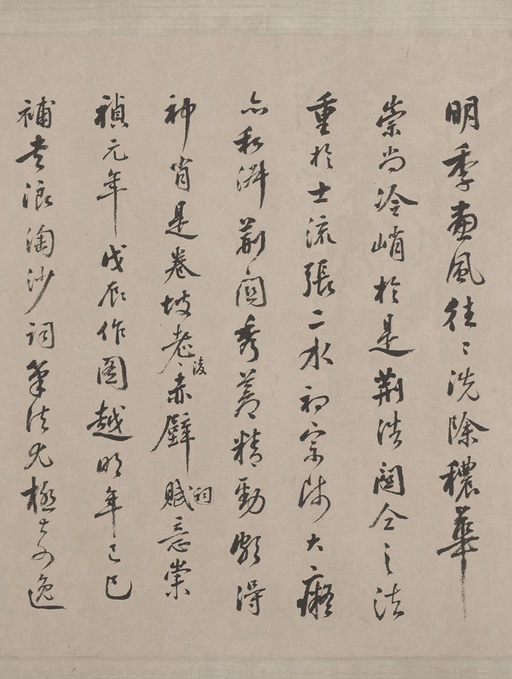 明季畫風往〻洗除穠華
崇尚冷峭於是荆浩關仝之法
重於士流張二水初宗師大癡
亦私淑荆關秀蒼精勁頗得
神肖是卷坡老後赤壁賦詞意崇
禎元年戊辰作圖越明年己巳
補書浪淘沙詞筆法尤極奇逸